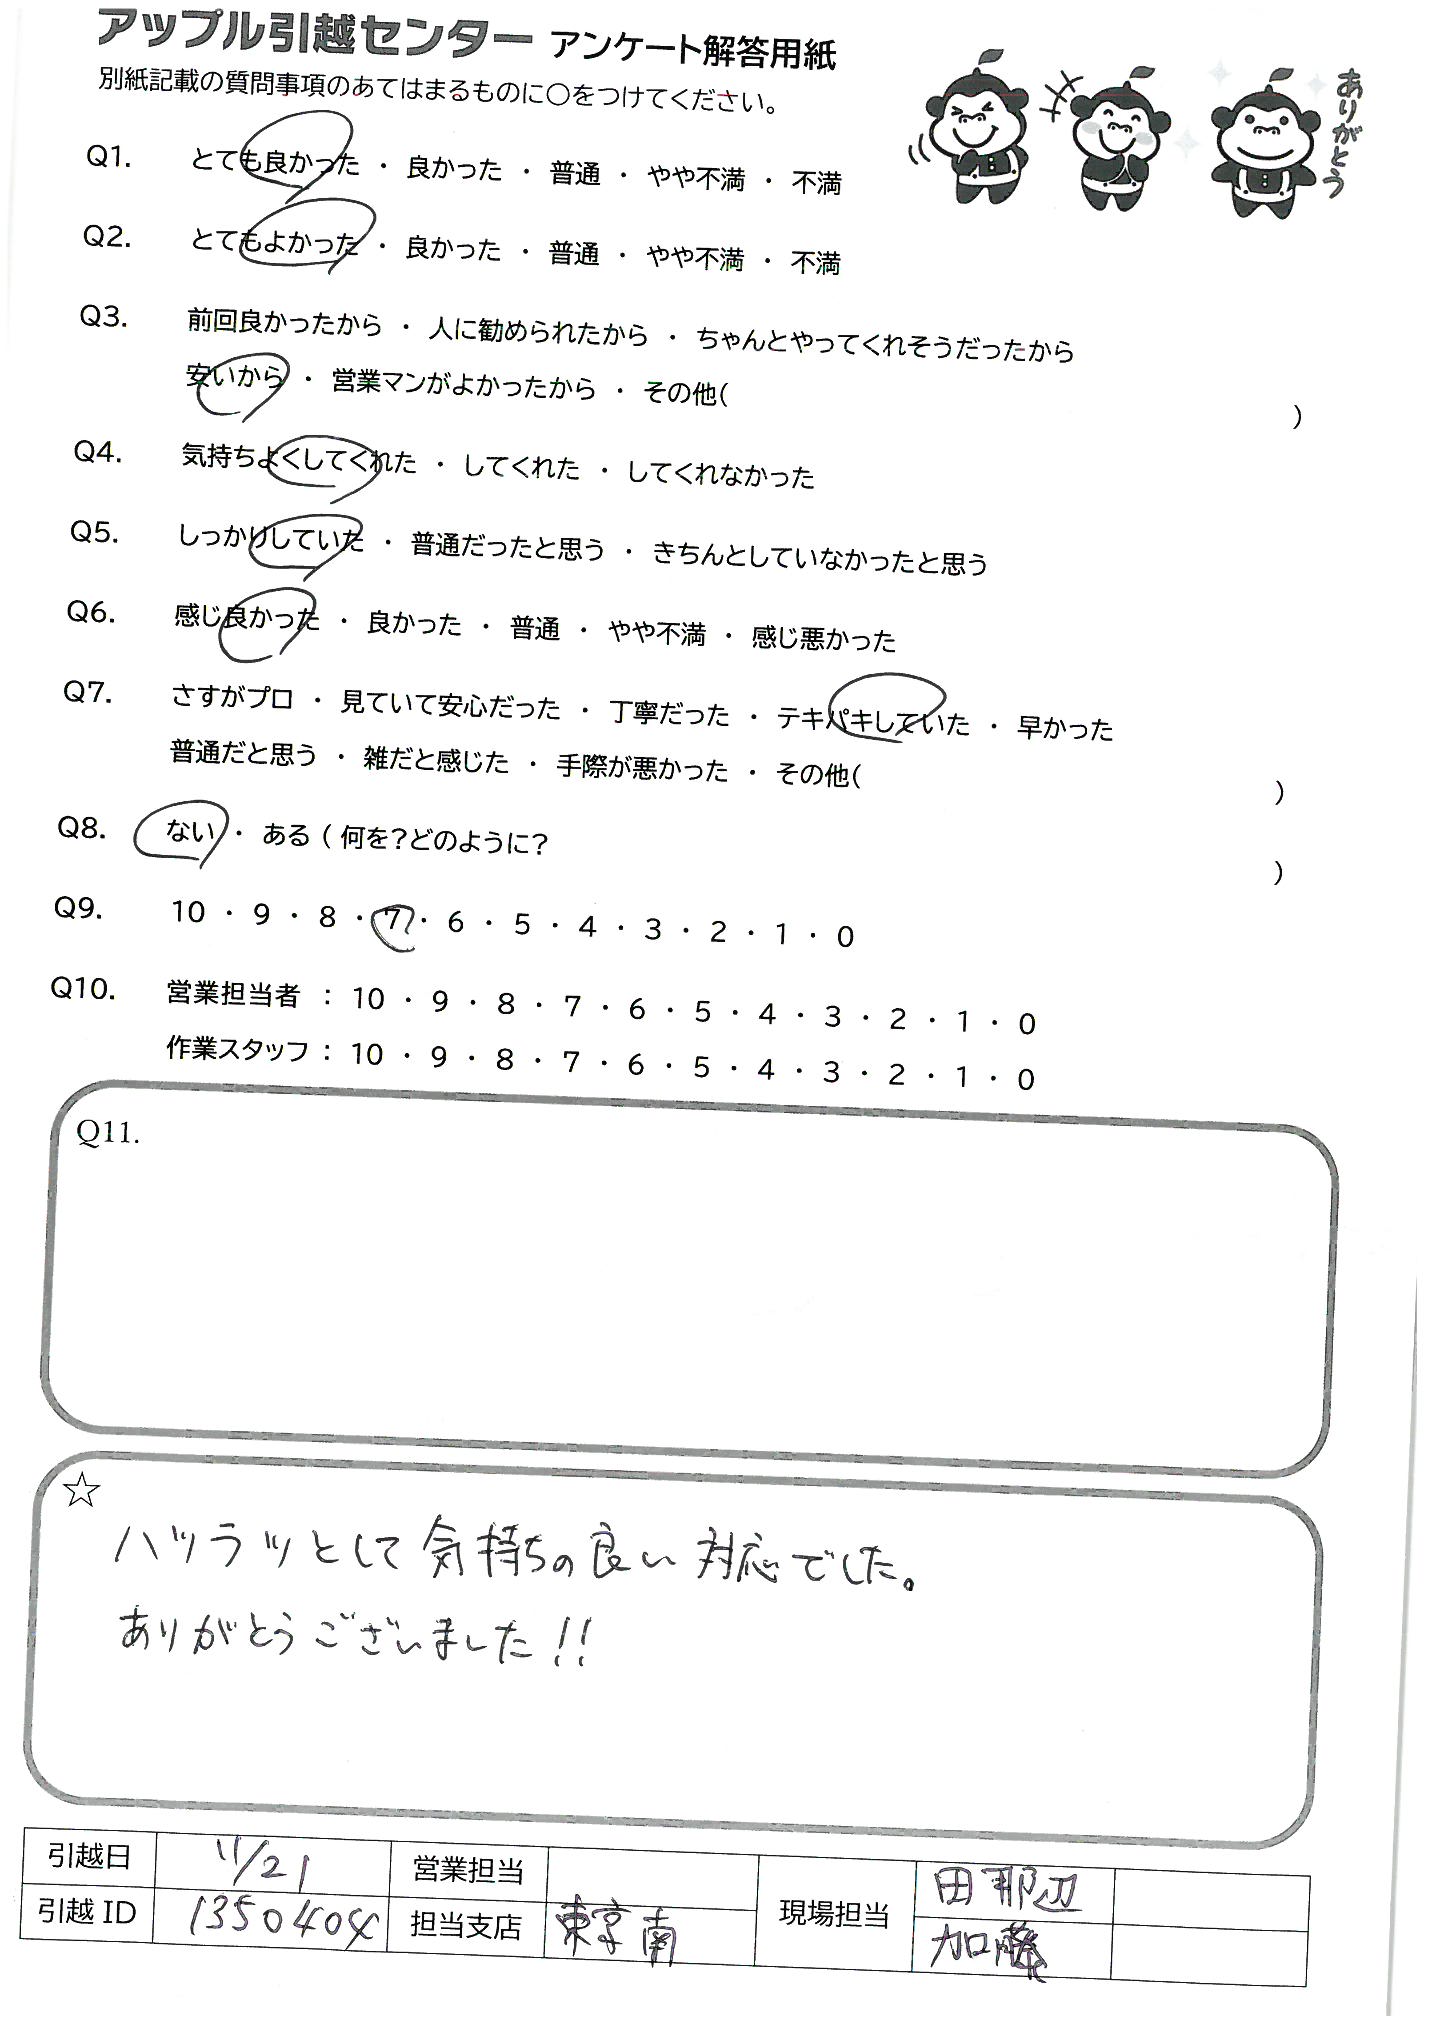 アップル引越センター アンケート解答用紙
別紙記載の質問事項のあてはまるものに○をつけてください。
ありがとう
Q1. とても良かった ・ 良かった ・ 普通 ・ やや不満 ・ 不満
Q2. とてもよかった ・ 良かった ・ 普通 ・ やや不満 ・ 不満
Q3. 前回良かったから ・ 人に勧められたから ・ ちゃんとやってくれそうだったから
安いから ・ 営業マンがよかったから ・ その他( )
Q4. 気持ちよくしてくれた ・ してくれた ・ してくれなかった
Q5. しっかりしていた ・ 普通だったと思う ・ きちんとしていなかったと思う
Q6. 感じ良かった ・ 良かった ・ 普通 ・ やや不満 ・ 感じ悪かった
Q7. さすがプロ ・ 見ていて安心だった ・ 丁寧だった ・ テキパキしていた ・ 早かった
普通だと思う ・ 雑だと感じた ・ 手際が悪かった ・ その他( )
Q8. ない ・ ある ( 何を?どのように? )
Q9. 10 ・ 9 ・ 8 ・ 7 ・ 6 ・ 5 ・ 4 ・ 3 ・ 2 ・ 1 ・ 0
Q10. 営業担当者 : 10 ・ 9 ・ 8 ・ 7 ・ 6 ・ 5 ・ 4 ・ 3 ・ 2 ・ 1 ・ 0
作業スタッフ : 10 ・ 9 ・ 8 ・ 7 ・ 6 ・ 5 ・ 4 ・ 3 ・ 2 ・ 1 ・ 0
Q11.
☆
ハツラツとして気持ちの良い対応でした。
ありがとうございました!!
引越日 11/21 営業担当 現場担当 田那辺
引越ID 1350404 担当支店 東京南 加藤